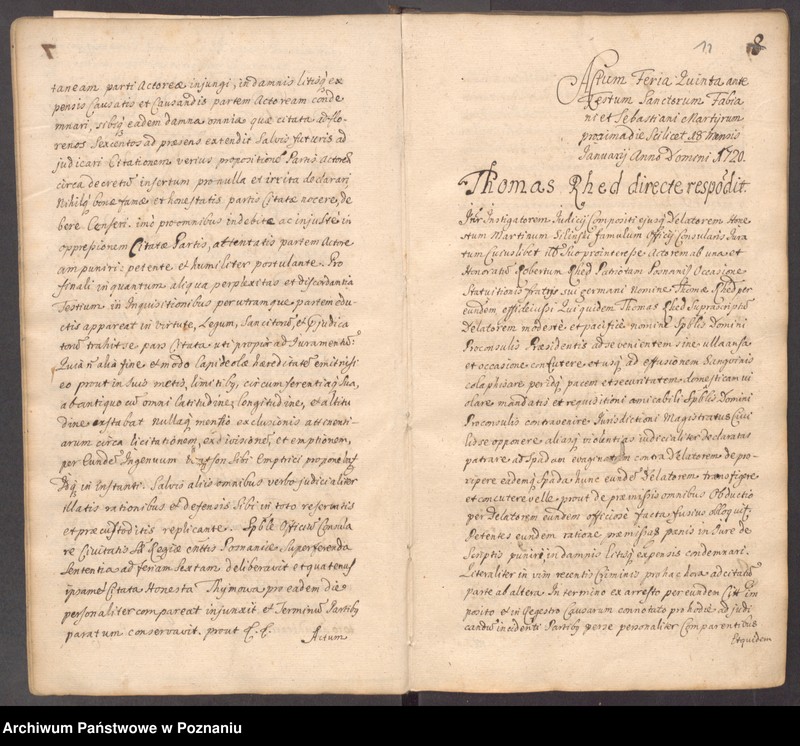 7
taneam parti Actoreæ injungi, in damnis litisq; ex
pensis Causatis et Causandis partem Actoream conde
mnari, sibiq; eadem damna omnia quæ citata ad flo-
renos Sexcentos ad præsens extendit Salvis futuris ad
judicari Citationem verius propositionē Partis Actoreæ
circa decretū insertum pro nulla et irrita declarari,
Nihilq; bonæ famæ et honestatis partis Citatæ nocere, de
bere Censeri. imò pro omnibus indebitè ac injustè in
oppressionem Citatæ Partis, attentatis partem Actore
am puniri: petente et humiliter postulante. Pro
finali in quantum aliqua perplexitas et discordantia
Testium in Inquisitionibus per utramque partem edu-
ctis appareat in virtute, Legum, Sancitorū, et Præjudica
torū trahit se pars Citata uti propior ad Juramentū:
Quia nō alia fine et modo Lapideolæ hæreditatē emit nisi
eo prout in suis metis, limitib9, circumferentiisq; Sua,
ab antiquo cū omni latitudine, longitudine, et altitu
dine exstabat nullaq; mentio exclusionis attenenti-
arum circa licitationem, exdivisionē, et emptionem,
per Eundē Ingenuum Watson Sibi Emptrici proponebat
Idq; in instanti. Salvis aliis omnibus verbo judicialiter
illatis rationibus et defensis Sibi in toto reservatis
et præcustoditis replicante. Spble Officiū Consula
re Civitatis S. R. Regiæ Mttis Posnaniæ Superferenda
Sententia ad feriam Sextam deliberavit et quatenus
ipsamet Citata Honesta Thymowa pro eadem die
personaliter compareat injunxit, et Terminū Partib9
paratum conservavit. prout &. &.
Actum
11
8
Actum Feria Quinta ante
Festum Sanctorum Fabia
ni et Sebastiani Martyrum
proxima die Scilicet 18 Mensis
Januarij Anno Domini 1720.
Thomas Rhed directe respōdit.
Inter Instigatorem Judicij Compositi ejusq; Delatorem Hone
stum Martinum Siliński famulum Officij Consularis Jura
tum Cujuslibet uti Suo prointeresse Actorem ab una et
Honoratū Robertum Rhed Patriotam Posnanię Occasione
Statuitionis fratris sui germani Nomine Thomæ Rhed per
eundem effidejussi Qui quidem Thomas Rhed Suprascriptū
Delatorem modestè et pacificè nomine Spblis Domini
Proconsulis Præsidentis ad se venientem sine ulla ansa
et occasione confutere et usq; ad effusionem Sanguinis
colaphisare per idq; pacem et securitatem domesticam vi
olare mandatis et requisitioni amicabili Spblis Domini
Proconsulis contravenire Jurisdictioni Magistratus Civi
lis se opponere aliasq; violentias judicialiter declaratas
patrare ad Spadam evaginatam contra Delatorem depro-
ripere eademq; Spada hunc eundē Delatorem transfigere
et concutere velle prout de præmissis omnibus Obductio
per Delatorem eundem officiosè facta fusius obloquit;
Petentes eundem ratione præmissorū pænis in Jure de
Scriptis puniri, in damnis litisq; expensis condemnari.
Literaliter in vim recentis Criminis pro hac hora ad citatū
parte ab altera. In termino ex arresto per eundem Citt im
posito et in Regestro Causarum connotato pro hodie ad judi
candū incidenti Partib9 per se personaliter Comparentibus
Etquidem
Archiwum Państwowe w Poznaniu